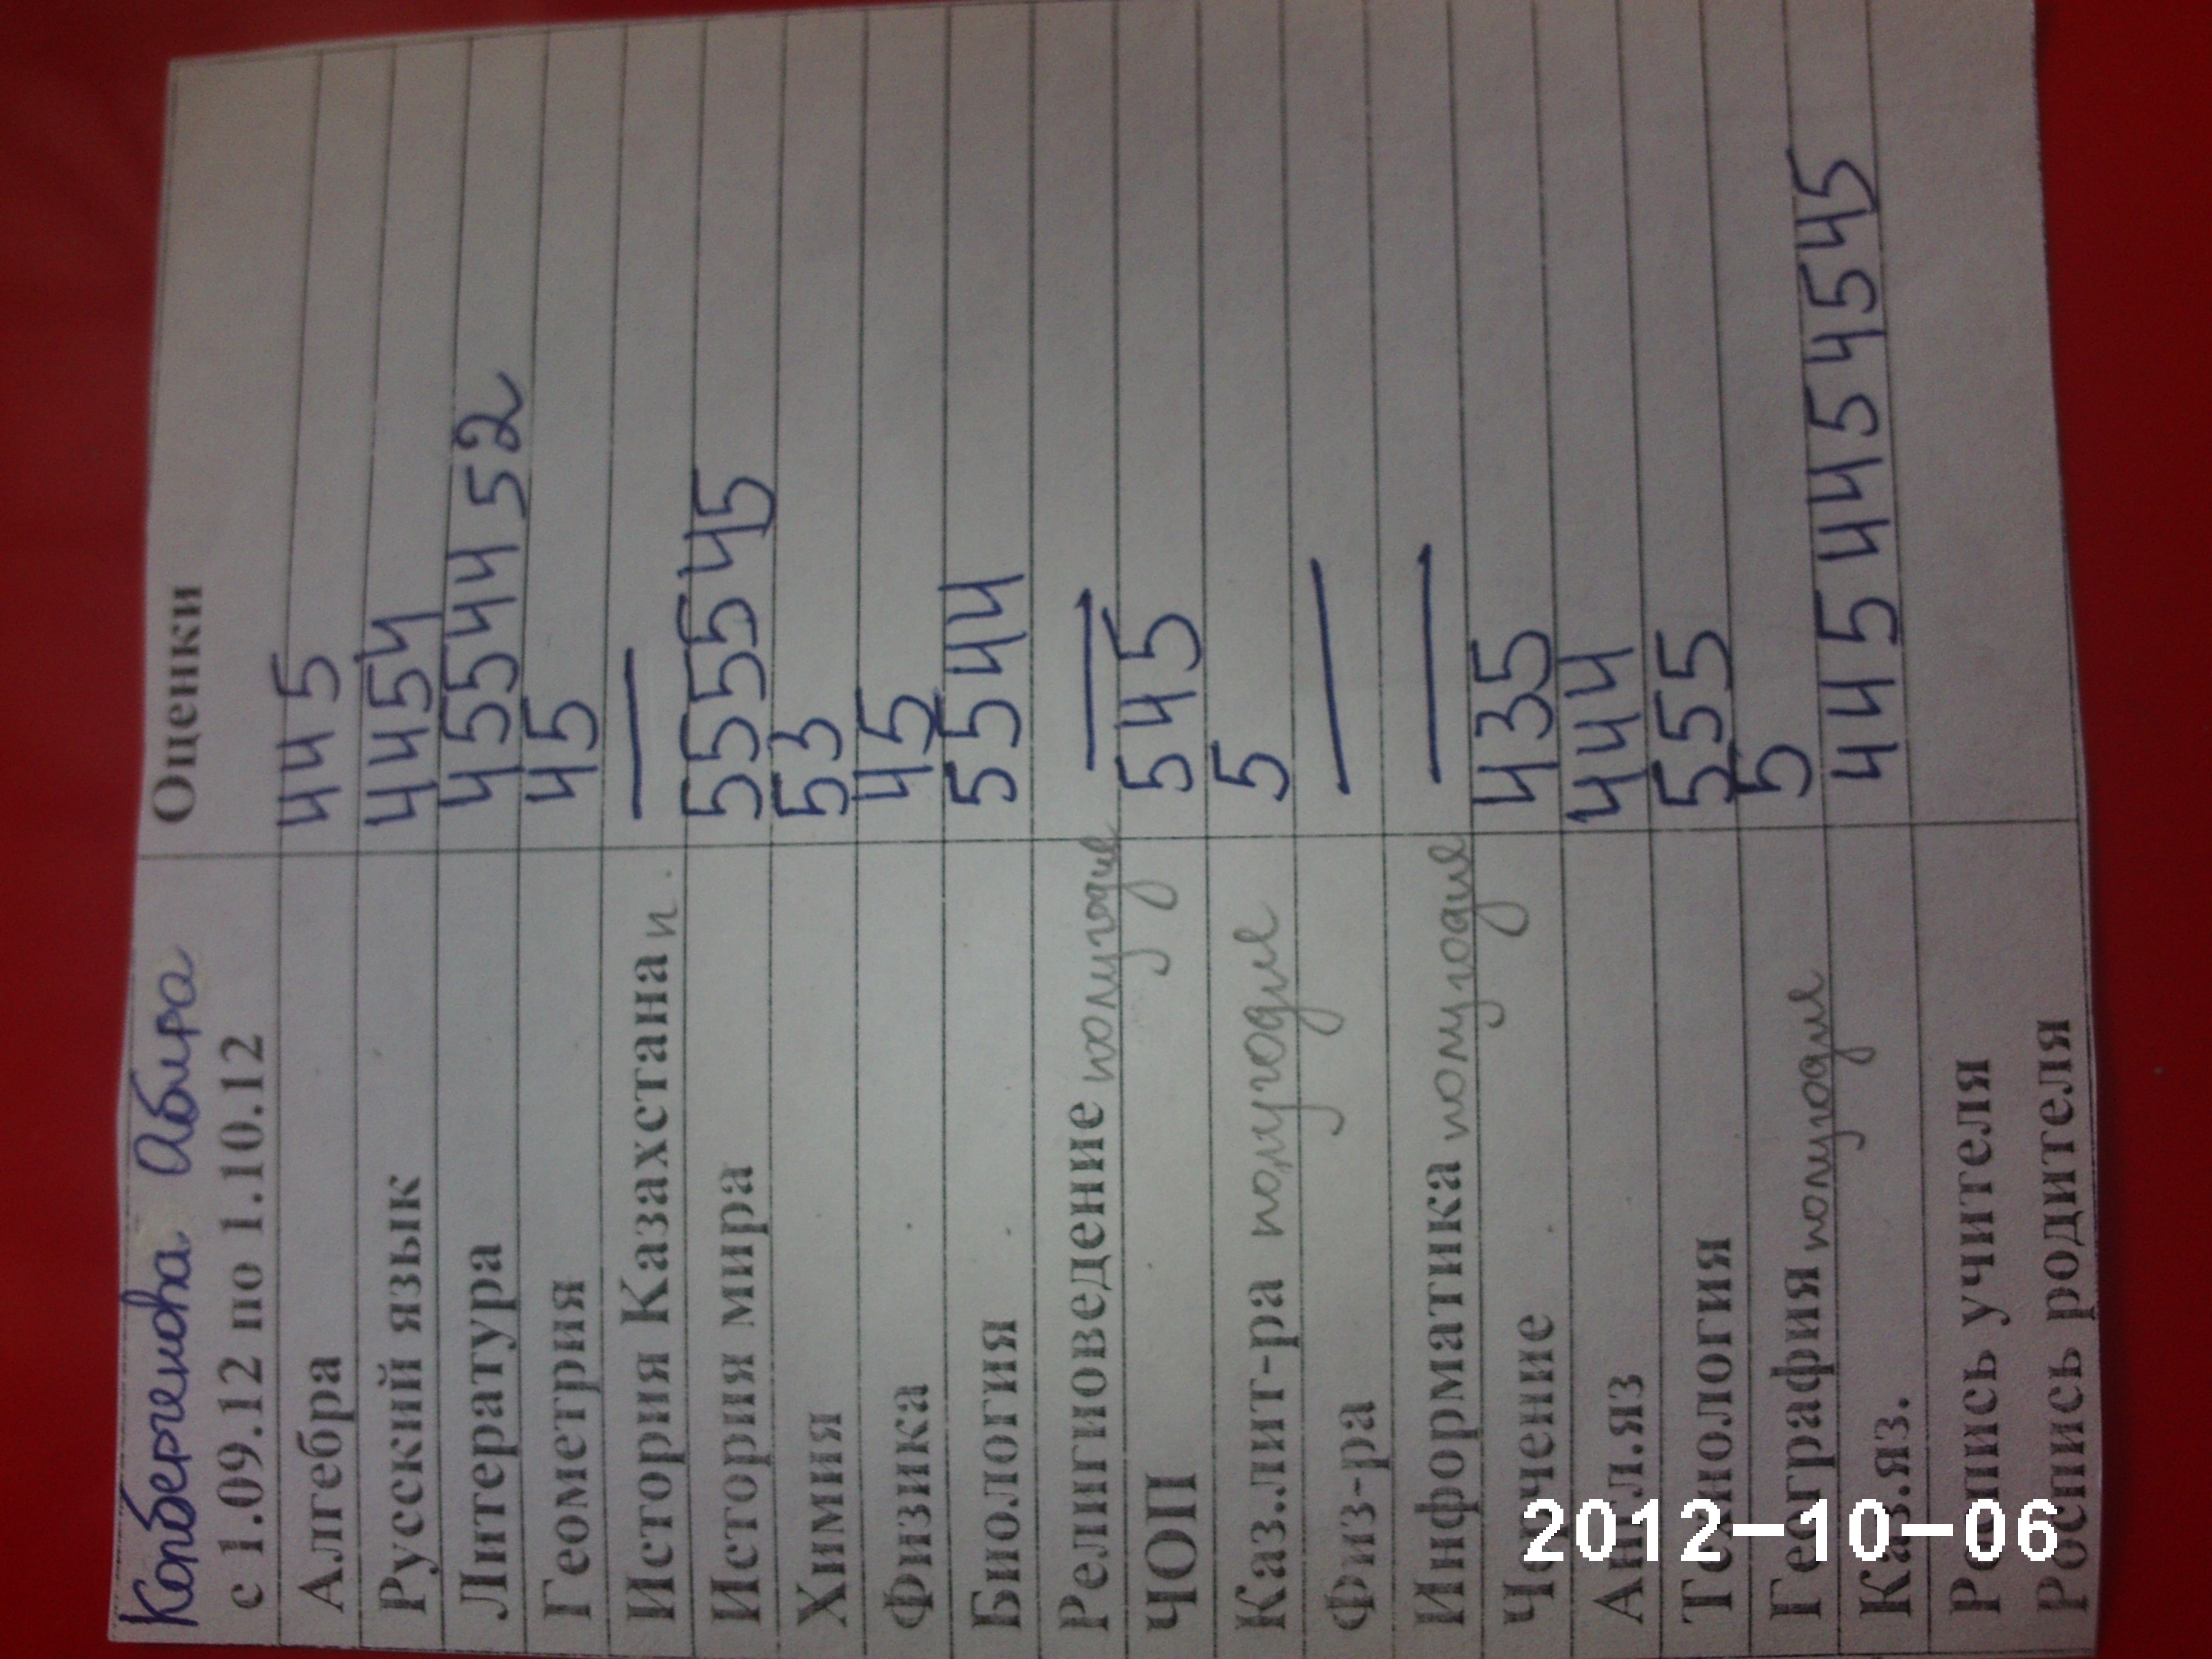 Копбергенова Абира
с 1.09.12 по 1.10.12 Оценки
Алгебра 4 4 5
Русский язык 4 4 5 4
Литература 4 5 5 4 4 5 2
Геометрия 4 5
История Казахстана п. —
История мира 5 5 5 5 4 5
Химия 5 3
Физика 4 5
Биология 5 5 4 4
Религиоведение полугодие —
ЧОП 5 4 5
Каз.лит-ра полугодие 5
Физ-ра —
Информатика полугодие —
Черчение 4 3 5
Англ.яз 4 4 4
Технология 5 5 5
География полугодие 5
Каз.яз. 4 4 5 4 4 5 4 5 4 5
Роспись учителя
Роспись родителя
2012-10-06